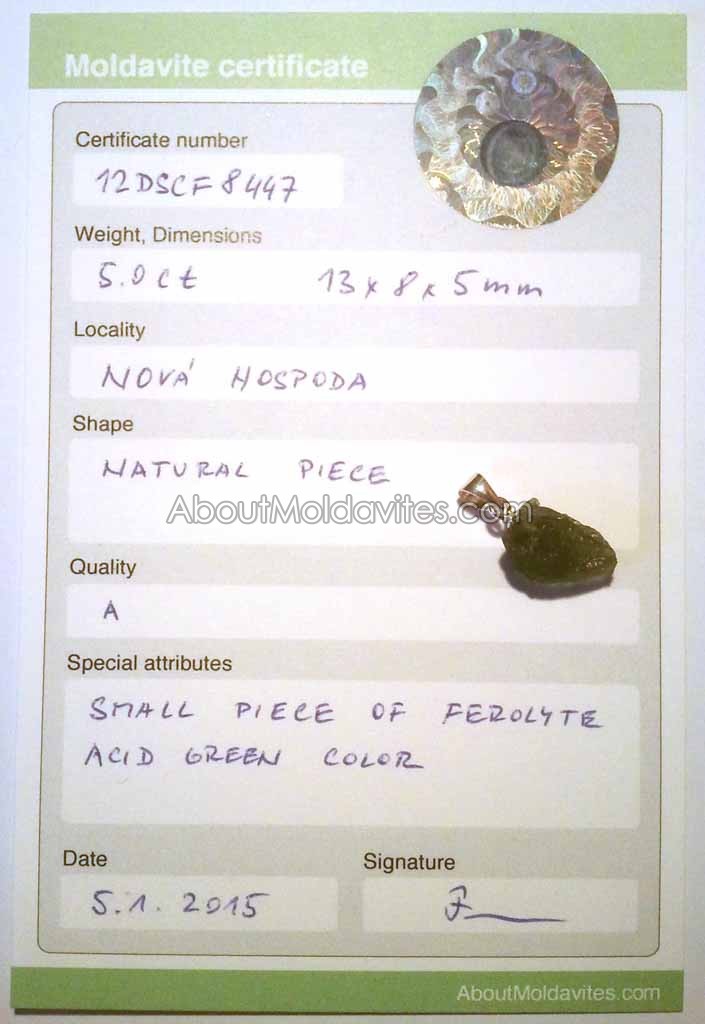 Moldavite certificate
Certificate number
12DSCF8447
Weight, Dimensions
5.0ct 13 x 8 x 5mm
Locality
NOVÁ HOSPODA
Shape
NATURAL PIECE
AboutMoldavites.com
Quality
A
Special attributes
SMALL PIECE OF FEROLYTE
ACID GREEN COLOR
Date Signature
5.1.2015
AboutMoldavites.com